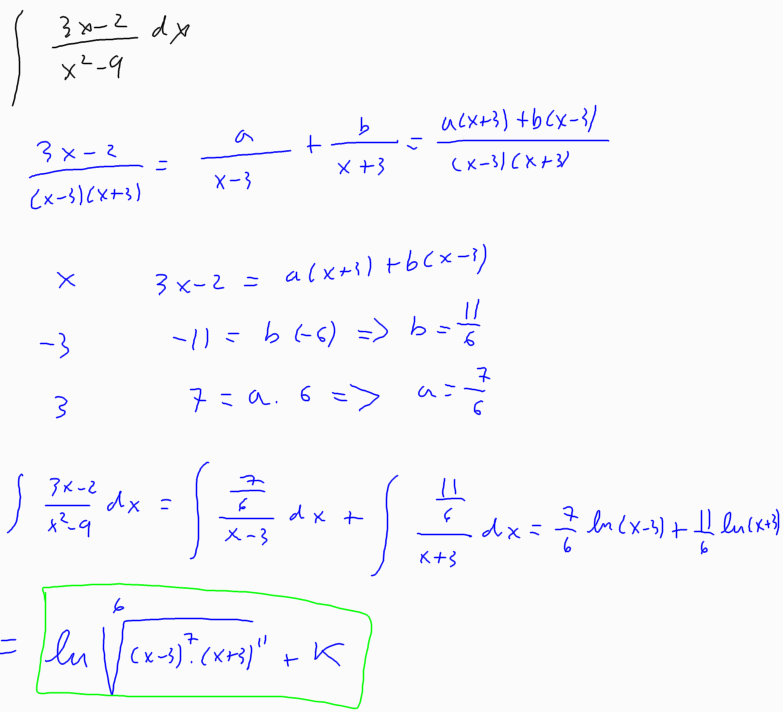 ∫ (3x-2)/(x²-9) dx
(3x-2)/((x-3)(x+3)) = a/(x-3) + b/(x+3) = (a(x+3)+b(x-3))/((x-3)(x+3))
x 3x-2 = a(x+3)+b(x-3)
-3 -11 = b(-6) => b = 11/6
3 7 = a.6 => a = 7/6
∫ (3x-2)/(x²-9) dx = ∫ (7/6)/(x-3) dx + ∫ (11/6)/(x+3) dx = 7/6 ln(x-3) + 11/6 ln(x+3)
= ln ⁶√((x-3)⁷.(x+3)¹¹) + K